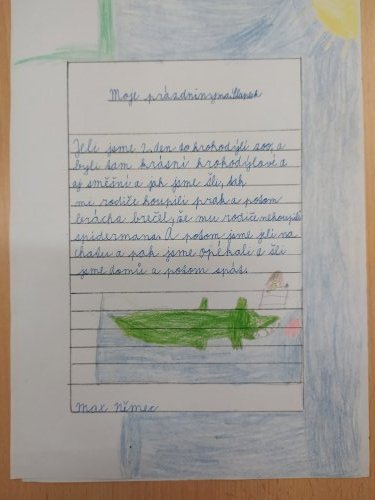 Moje prázdniny na
Jeli jsme 2. den do krokodýlí zoo, a
byli tam krásní krokodýlové a
aj směšní a jak jsme šli, tak
me rodiče koupili prak a potom
brácha brečel, že mu rodiče nekoupili
spidermana. A potom jsme jeli na
chatu a pak jsme opékali a šli
jsme domů a potom spát.
Max Němec